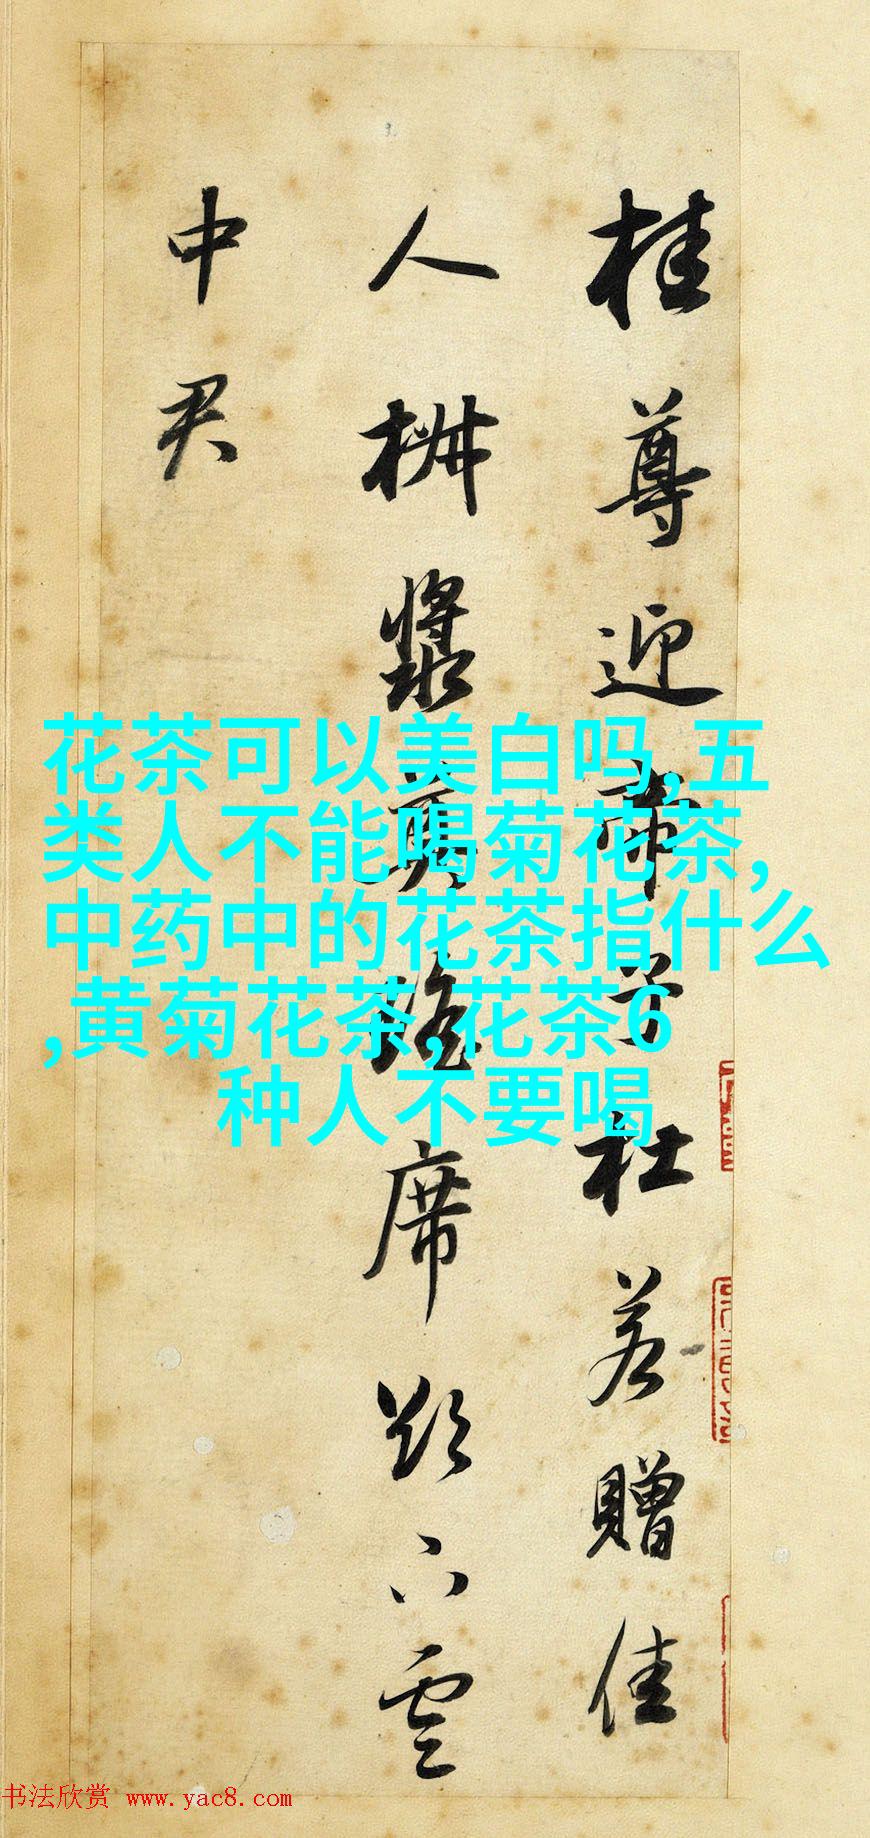 桂尊迎帝子杜若贈佳
人椒漿奠瑤席欲下雲
中君
花茶可以美白吗,五
类人不能喝菊花茶,
中药中的花茶指什么
,黄菊花茶,花茶6
种人不要喝
书法欣赏 www.yac8.com